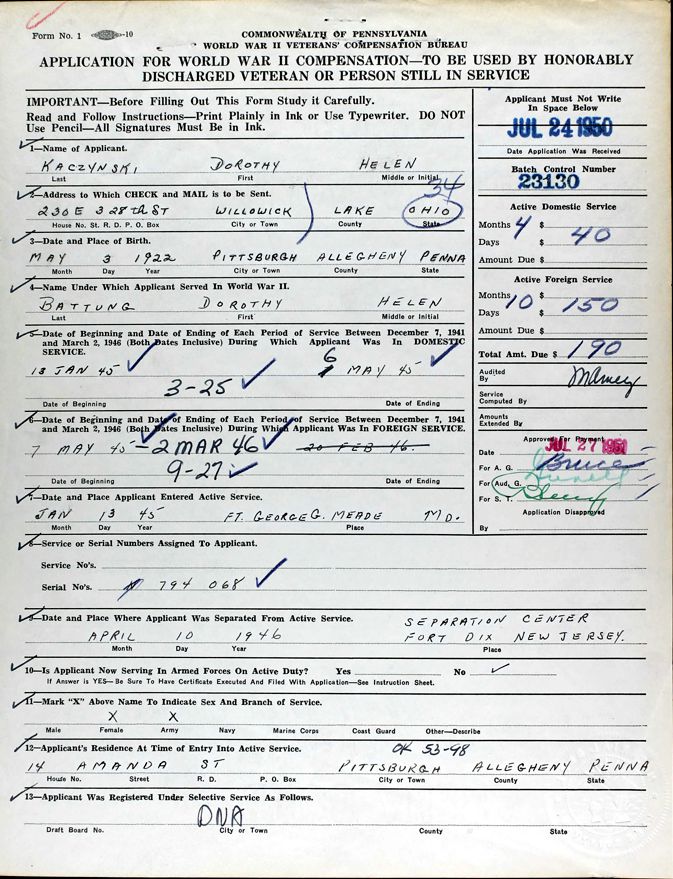 Form No. 1 -10
COMMONWEALTH OF PENNSYLVANIA
WORLD WAR II VETERANS' COMPENSATION BUREAU
APPLICATION FOR WORLD WAR II COMPENSATION—TO BE USED BY HONORABLY
DISCHARGED VETERAN OR PERSON STILL IN SERVICE
IMPORTANT—Before Filling Out This Form Study it Carefully.
Read and Follow Instructions—Print Plainly in Ink or Use Typewriter. DO NOT
Use Pencil—All Signatures Must Be in Ink.
1—Name of Applicant.
KACZYNSKI DOROTHY HELEN
Last First Middle or Initial
34
2—Address to Which CHECK and MAIL is to be Sent.
230 E 328th ST WILLOWICK LAKE OHIO
House No. St. R. D. P. O. Box City or Town County State
3—Date and Place of Birth.
MAY 3 1922 PITTSBURGH ALLEGHENY PENNA
Month Day Year City or Town County State
4—Name Under Which Applicant Served In World War II.
BATTUNG DOROTHY HELEN
Last First Middle or Initial
5—Date of Beginning and Date of Ending of Each Period of Service Between December 7, 1941
and March 2, 1946 (Both Dates Inclusive) During Which Applicant Was In DOMESTIC
SERVICE.
13 JAN 45 6 MAY 45
3-25
Date of Beginning Date of Ending
6—Date of Beginning and Date of Ending of Each Period of Service Between December 7, 1941
and March 2, 1946 (Both Dates Inclusive) During Which Applicant Was In FOREIGN SERVICE.
7 MAY 45 - 2 MAR 46 20 FEB 46.
9-27
Date of Beginning Date of Ending
7—Date and Place Applicant Entered Active Service.
JAN 13 45 FT. GEORGE G. MEADE MD.
Month Day Year Place
8—Service or Serial Numbers Assigned To Applicant.
Service No's.
Serial No's. 794 068
9—Date and Place Where Applicant Was Separated From Active Service.
SEPARATION CENTER
APRIL 10 1946 FORT DIX NEW JERSEY.
Month Day Year Place
10—Is Applicant Now Serving In Armed Forces On Active Duty? Yes No ✓
If Answer is YES—Be Sure To Have Certificate Executed And Filed With Application—See Instruction Sheet.
11—Mark "X" Above Name To Indicate Sex And Branch of Service.
X X
Male Female Army Navy Marine Corps Coast Guard Other—Describe
12—Applicant's Residence At Time of Entry Into Active Service. OK 53-98
14 AMANDA ST PITTSBURGH ALLEGHENY PENNA
House No. Street R. D. P. O. Box City or Town County State
13—Applicant Was Registered Under Selective Service As Follows.
DNA
Draft Board No. City or Town County State
Applicant Must Not Write
In Space Below
JUL 24 1950
Date Application Was Received
Batch Control Number
23130
Active Domestic Service
Months 4 $
Days $ 40
Amount Due $
Active Foreign Service
Months 10 $
Days $ 150
Amount Due $
Total Amt. Due $ 190
Audited
By
Service
Computed By
Amounts
Extended By
Approved For Payment
Date JUL 27 1951
For A. G. Bruce
For Aud. G.
For S. T.
Application Disapproved
By